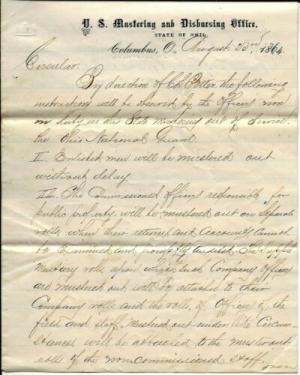 U. S. Mustering and Disbursing Office,
STATE OF OHIO,
Columbus, O. August 23rd 1864
Circular.
By direction of Col. Potter the following
instructions will be observed by the Officers now
on duty in this State Mustering out of Service
the Ohio National Guard.
I. Enlisted men will be mustered out
without delay
II. The Commissioned officers responsible for
public property will be mustered out on separate
rolls, when their returns and accounts cannot
be examined and promptly audited. The
Muster rolls upon which such Company Officers
are mustered out, will be attached to their
Company rolls and the rolls of Officers of the
field and staff mustered out under like circum
stances will be attached to the muster out
rolls of the non commissioned staff.